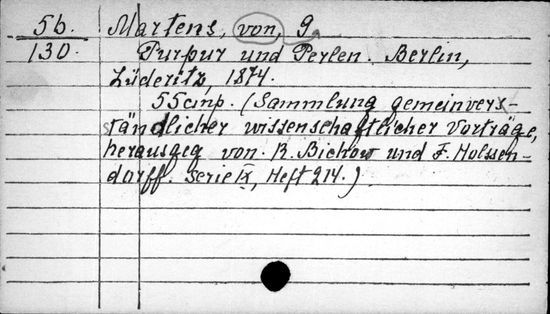 56. Martens, von, G.
130. Purpur und Perlen. Berlin,
Lüderitz, 1874.
55 стр. (Sammlung gemeinvers-
tändlicher wissenschaftlicher Vorträge,
herausgeg von. R. Bichow und F. Holssen-
dorff. Serie IX, Heft 214.)